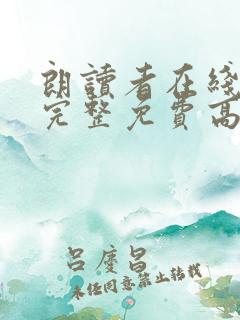 朗讀者在綫
完整免費高
呂慶昌
未经同意禁止转载